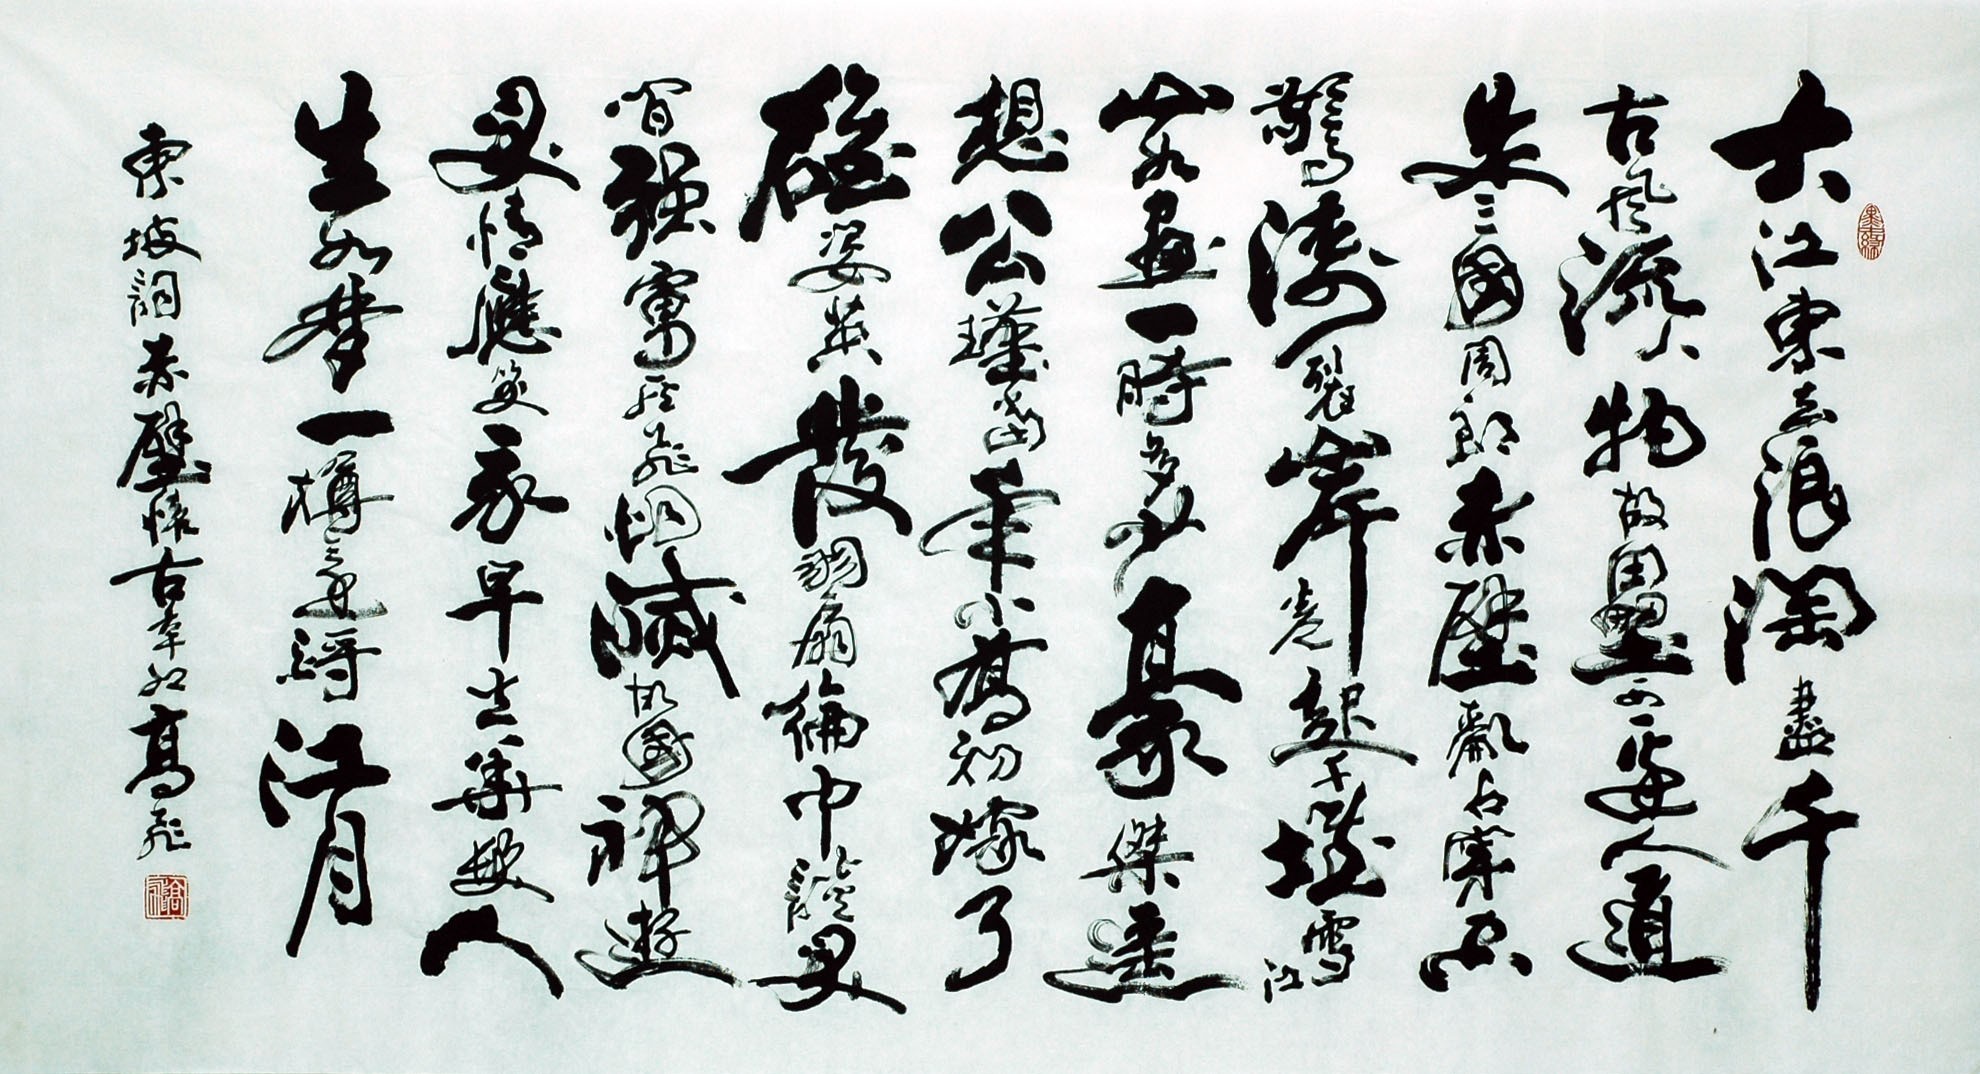 大江東去浪淘盡千
古風流人物故壘西邊人道
是三國周郎赤壁亂石穿空
驚濤裂岸卷起千堆雪江
山如畫一時多少豪傑遙
想公瑾當年小喬初嫁了
雄姿英發羽扇綸巾談笑
間強虜灰飛烟滅故國神遊
多情應笑我早生華髮人
生如夢一樽還酹江月
東坡詞赤壁懷古辛卯高飛